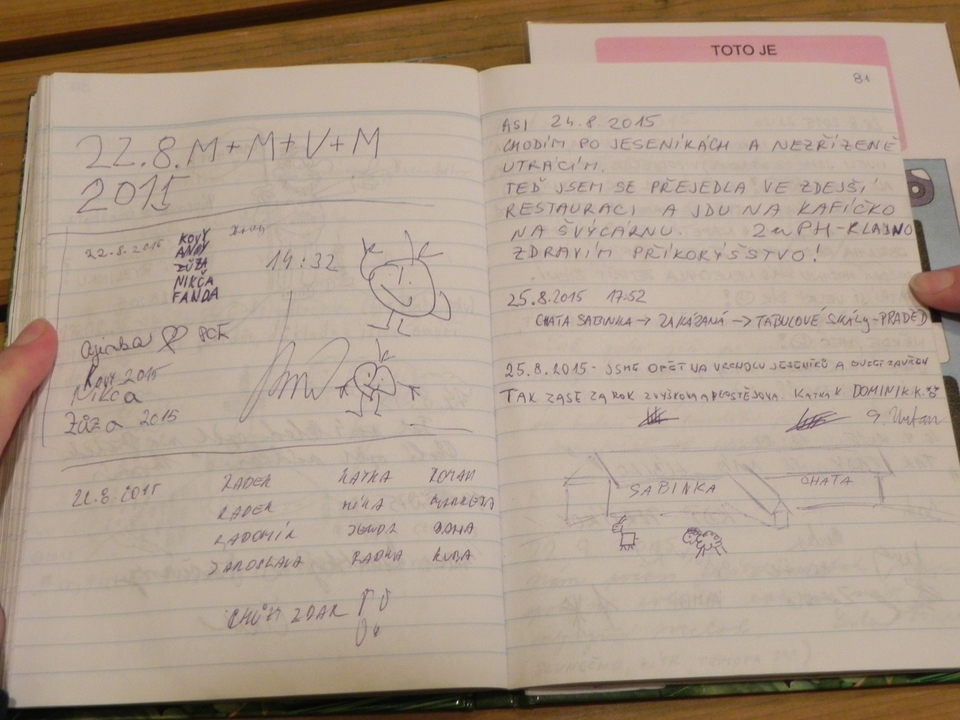 22.8. M+M+V+M
2015
22.8.2015
KOVY
ANNY
ZŮZA
NIKČA
FANDA
14:32
Kovy 2015
Nikča
Zůza 2015
22.8.2015 RADEK KATKA ROMAN
RADEK MÍRA MARKETA
RADOMÍR
JAROSLAVA RADKA KUBA
ZDAR
TOTO JE
81
ASI 24.8.2015
CHODÍM PO JESENÍKÁCH A NEZŘÍZENĚ
UTRÁCÍM.
TEĎ JSEM SE PŘEJEDLA VE ZDEJŠÍ
RESTAURACI A JDU NA KAFÍČKO
NA ŠVÝCÁRNU. ZUPH-KLADNO
ZDRAVÍM PŘÍKORÝŠSTVO!
25.8.2015 17:52
CHATA SABINKA → ZAKÁZANÁ → TABULOVÉ SKÁLY - PRADĚD
25.8.2015 - JSME OPĚT NA VRCHOLU JESENÍKŮ A
TAK ZASE ZA ROK KATKA K. DOMINIK K.
SABINKA CHATA